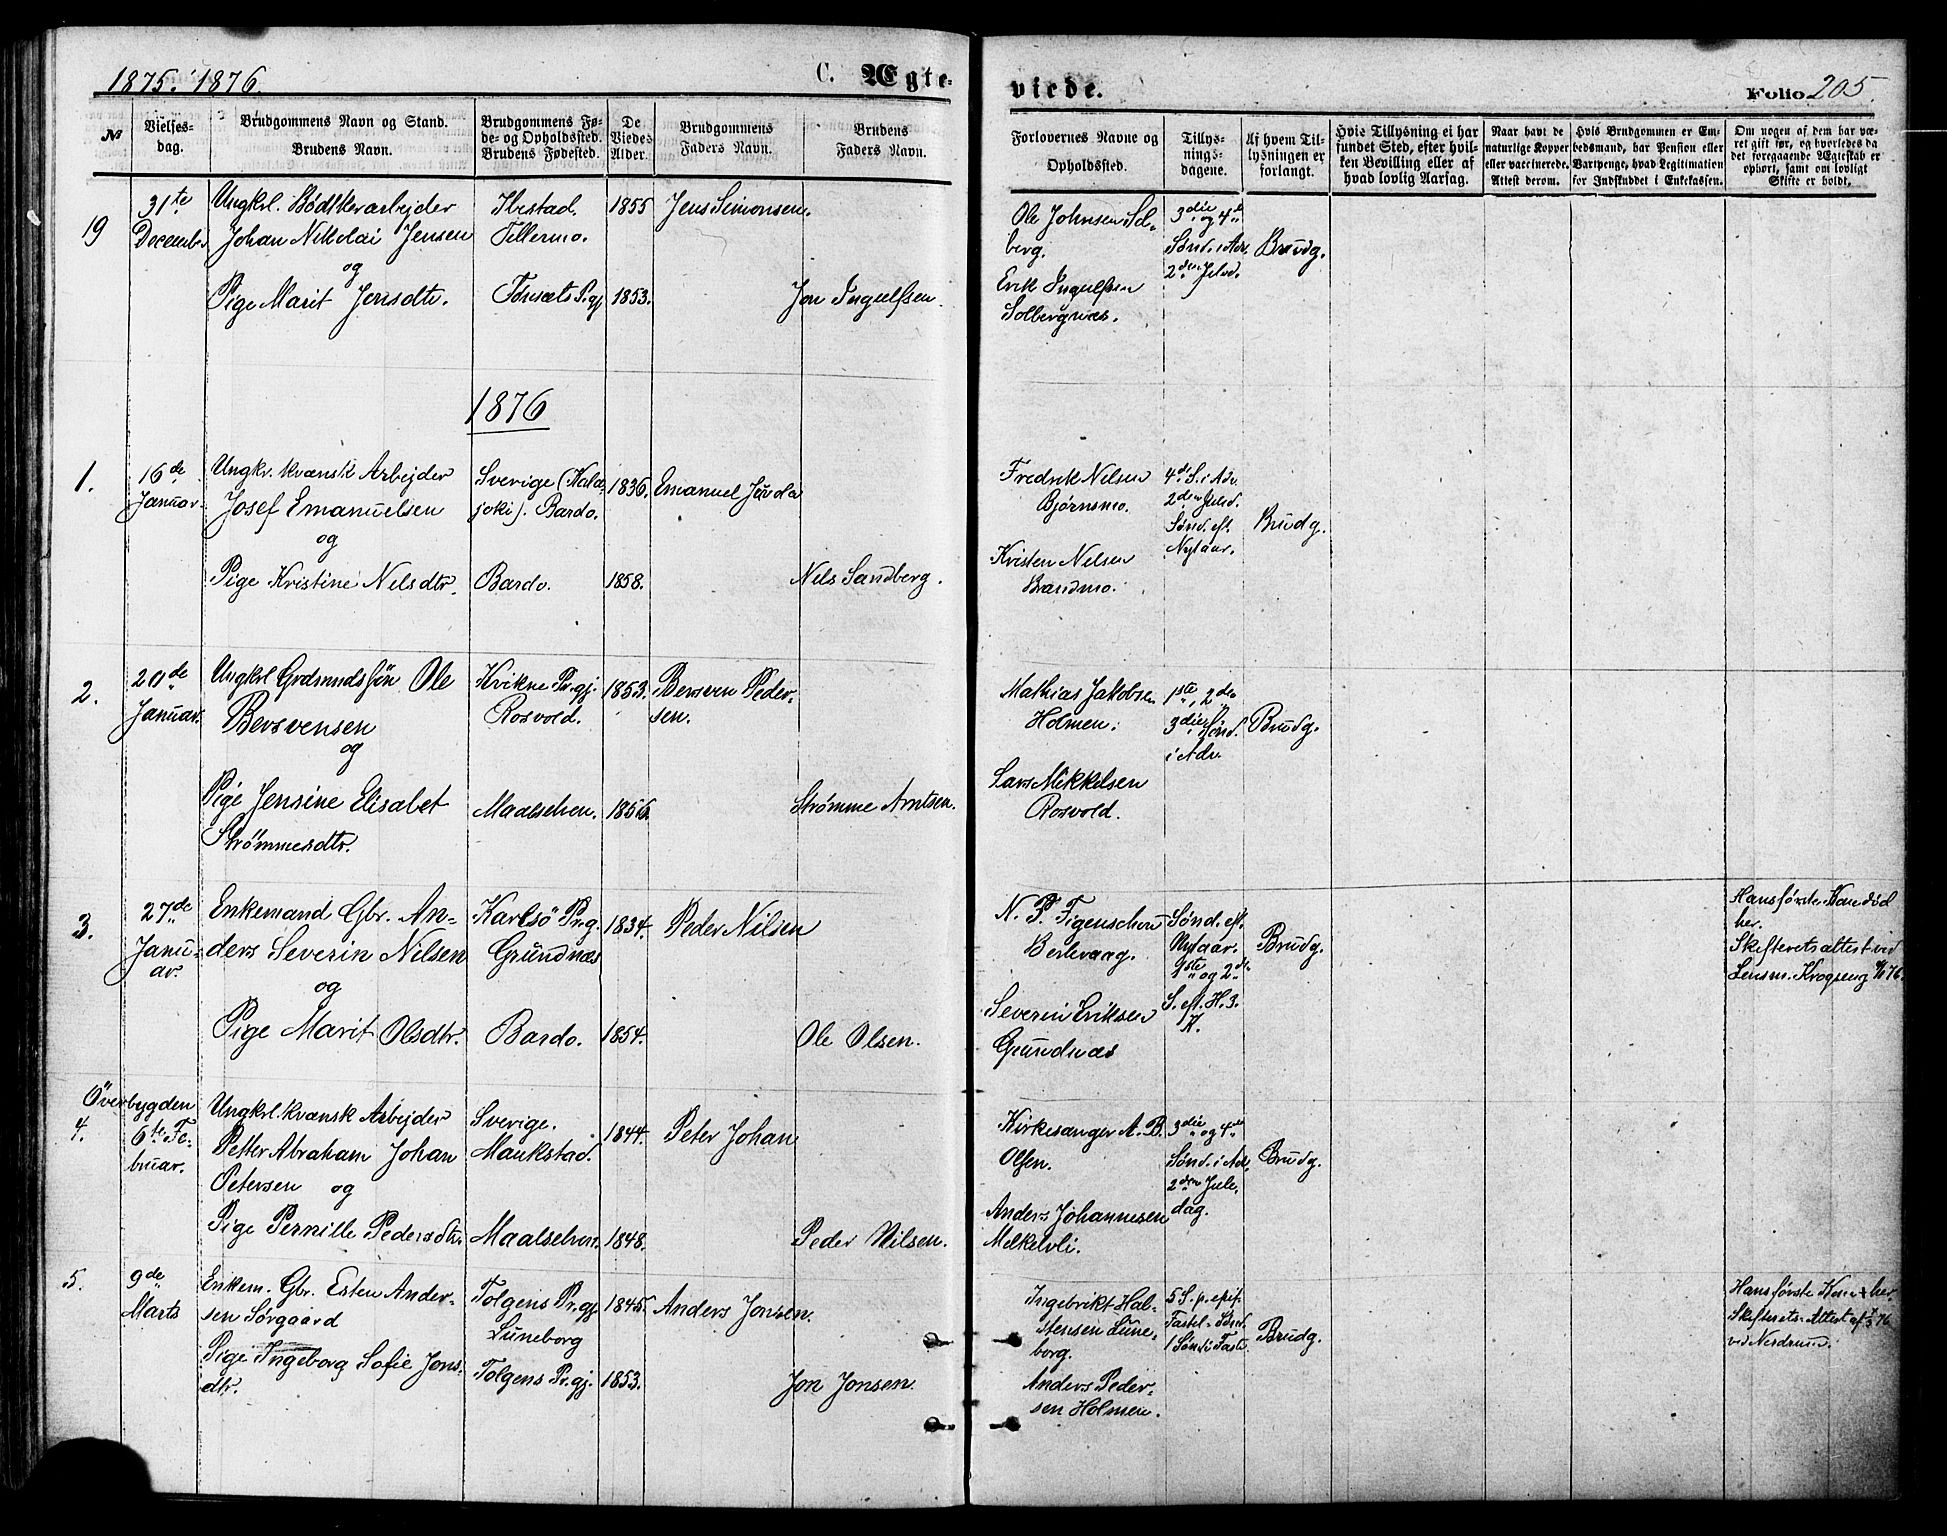 1875. 1876.
C. Ægte-
№
Vielses-
dag.
Brudgommens Navn og Stand.
Brudens Navn.
Brudgommens Fø-
de- og Opholdssted.
Brudens Fødested.
De
Viedes
Alder.
Brudgommens
Faders Navn.
Brudens
Faders Navn.
19
31te
December
Ungkrl. Bødtkerarbejder
Johan Nikolai Jensen
og
Pige Marit Jensdtr.
Ibestad.
Tillermo.
Tønsets Pgj
1855
1853.
Jens Simonsen.
Jon Ingulfsen.
1876
1.
16de
Januar.
Ungkr. kvænsk Arbejder
Josef Emanuelsen
og
Pige Kristine Nilsdtr.
Sverige (Kala-
joki). Bardo.
Bardo.
1836.
1858.
Emanuel
Nils Sandberg.
2.
20de
Januar.
Ungkrl Grdmndssøn Ole
Bersvensen
og
Pige Jensine Elisabet
Strømmesdtr.
Kvikne Pr.gj.
Rosvold.
Maalselven.
1853.
1856.
Bersven Peder-
sen.
Strømme Arntsen.
3.
27de
Janu-
ar.
Enkemand Gbr. An-
ders Severin Nilsen
og
Pige Marit Olsdtr.
Karlsö Pr.g.
Grundnæs
Bardo.
1834.
1854.
Peder Nilsen
Ole Olsen.
Överbygden
4.
6te Fe-
bruar.
Ungkrl. kvænsk Arbejder
Petter Abraham Johan
Petersen og
Pige Pernille Pedersdtr.
Sverige.
Maukstad.
Maalselven.
1844.
1848.
Peter Johan
Peder Nilsen.
5.
9de
Marts
Enkem. Gbr. Esten Ander-
sen Sørgaard
Pige Ingeborg Sofie Jons-
dtr.
Tolgens Pr.gj.
Luneborg
Tolgens Pr.gj.
1845.
1853.
Anders Jonsen.
Jon Jonsen.
viede.
Folio 205.
Forlovernes Navne og
Opholdssted.
Tillys-
nings-
dagene.
Af hvem Til-
lysningen er
forlangt.
Hvis Tillysning ei har
fundet Sted, efter hvil-
ken Bevilling eller af
hvad lovlig Aarsag.
Naar havt de
naturlige Kopper
eller vaccinerede.
Attest derom.
Hvis Brudgommen er Em-
bedsmand, har Pension eller
Vartpenge, hvad Legitimation
for Indskuddet i Enkekassen.
Om nogen af dem har væ-
ret gift før, og hvorledes da
det foregaaende Ægteskab er
ophørt, samt om lovligt
Skifte er holdt.
Ole Johnsen Sol-
berg.
Erik Ingulfsen
Solbergnæs.
3die og 4de
Sønd. i Adv.
2den Juled.
Brudg.
Fredrik Nilsen
Bjørnsmo.
Kristen Nilsen
Brandmo.
4de S. i Adv.
2den Juled.
Sønd. eft.
Nytaar.
Brudg.
Mathias Jakobsen
Holmen.
Lars Mikkelsen
Rosvold.
1ste, 2den
3die Sønd.
i Adv.
Brudg.
N. P. Figenschou
Berlevaag.
Severin Eriksen
Grundnæs
Sønd. eft.
Nytaar.
1ste og 2den
S. eft. H. 3.
K.
Brudg.
Hans første Kone død
her.
Skifteretsattest ved
Lensm. Krogseng
Kirkesanger A. B.
Olsen.
Anders Johannesen
Melkelvli.
3die og 4de
Sønd. i Adv.
2den Jule-
dag.
Brudg.
Ingebrikt Hal-
stensen Lune-
borg.
Anders Peder-
sen Holmen.
5 S. p. epif.
Fastel. Sønd.
1 Sønd i Faste
Brudg.
Hans første Kone † her.
Skifterets-Attest af
ved Nordrum.